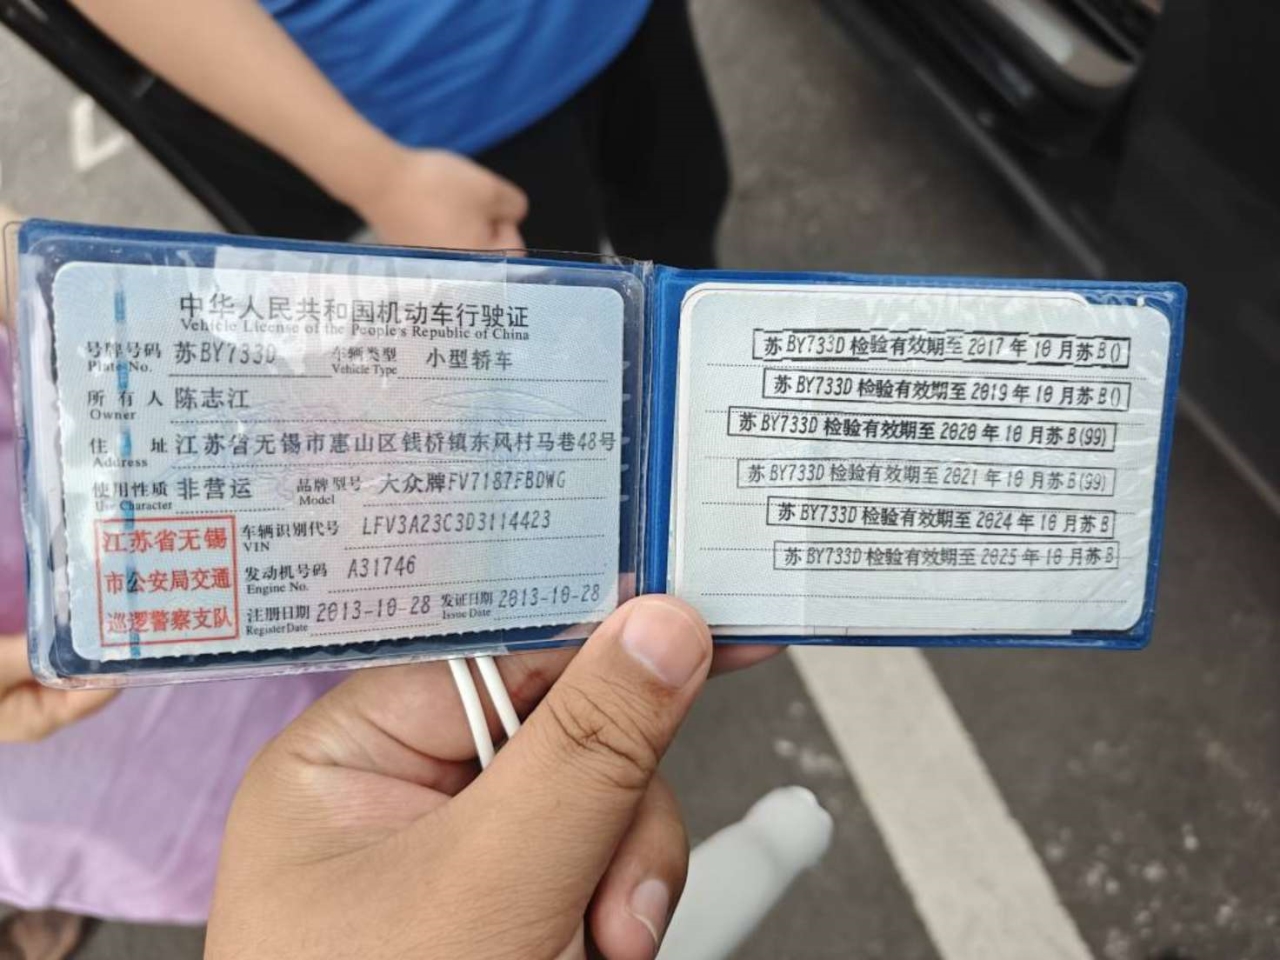 中华人民共和国机动车行驶证
Vehicle License of the People's Republic of China
号牌号码 苏BY733D 车辆类型 小型轿车
Plate No. Vehicle Type
所有人 陈志江
Owner
住址 江苏省无锡市惠山区钱桥镇东风村马巷48号
Address
使用性质 非营运 品牌型号 大众牌FV7187FBDWG
Use Character Model
江苏省无锡
市公安局交通
巡逻警察支队
车辆识别代号 LFV3A23C3D3114423
VIN
发动机号码 A31746
Engine No.
注册日期 2013-10-28 发证日期 2013-10-28
Register Date Issue Date
苏BY733D 检验有效期至 2017 年 10 月苏B()
苏BY733D 检验有效期至 2019 年 10 月苏B()
苏BY733D 检验有效期至 2020 年 10 月苏B(99)
苏BY733D 检验有效期至 2021 年 10 月苏B(99)
苏BY733D 检验有效期至 2024 年 10 月苏B
苏BY733D 检验有效期至 2025 年 10 月苏B